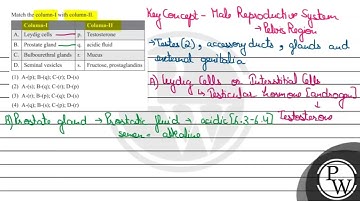 Match the column-I with column-II.
Column-I Column-II
A. Leydig cells p. Testosterone
B. Prostate gland q. acidic fluid
C. Bulbourethral glands r. Mucus
D. Seminal vesicles s. Fructose, prostaglandins
(1) A-(p); B-(q); C-(r); D-(s)
(2) A-(s); B-(r); C-(q); D-(p)
(3) A-(r), B-(p), C-(q), D-(s)
(4) A-(r), B-(p), C-(s), D-(q)
Key Concept - Male Reproductive System
→ Pelvis Region
→ Testes (2), accessory ducts, glands and
external genitalia
A) Leydig Cells or Interstitial Cells
↳ Testicular hormone [androgen]
↓
Testosterone
B) Prostate gland → Prostatic fluid → acidic [6.3-6.4]
semen = alkaline
P
W